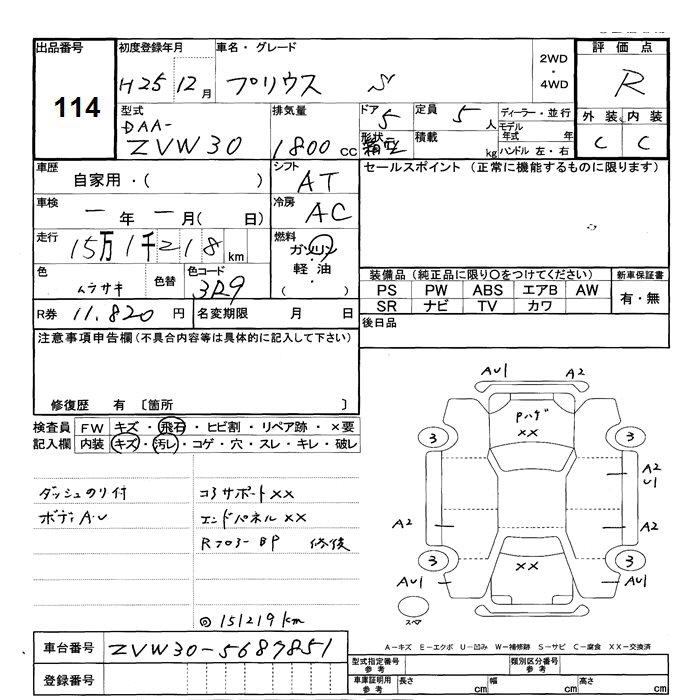 出品番号
114
初度登録年月
H25 12月
車名・グレード
プリウス S
2WD
・
4WD
評価点
R
型式
DAA-
ZVW30
排気量
1800 cc
ドア
5
形状
箱型
定員
5 人
積載
kg
ディーラー・並行
モデル
年式 年
ハンドル 左・右
外装 内装
C C
車歴
自家用・( )
シフト
AT
セールスポイント (正常に機能するものに限ります)
車検
一年 一月( 日)
冷房
AC
走行
15万1千218km
燃料
ガソリン
・
軽油
・
( )
色
ムラサキ
色替
色コード
3R9
装備品 (純正品に限り○をつけてください)
新車保証書
PS PW ABS エアB AW
SR ナビ TV カワ
有・無
R券 11,820 円
名変期限 月 日
後日品
注意事項申告欄(不具合内容等は具体的に記入して下さい)
修復歴 有 〔箇所 〕
検査員
記入欄
FW キズ・飛石・ヒビ割・リペア跡・×要
内装 キズ・汚レ・コゲ・穴・スレ・キレ・破レ
ダッシュのり付
ボディA・U
コアサポートXX
エンドパネルXX
Rフロアー BP 修復
◎151219km
AU1
A2
Pハゲ
XX
3
3
A2
U1
A2
A2
3
3
XX
AU1
AU1
スペア
A-キズ E-エクボ U-凹み W-補修跡 S-サビ C-腐食 XX-交換済
車台番号
ZVW30-5687851
登録番号
型式指定番号
参考
類別区分番号
参考
車庫証明用
参考
長さ cm
幅 cm
高さ cm